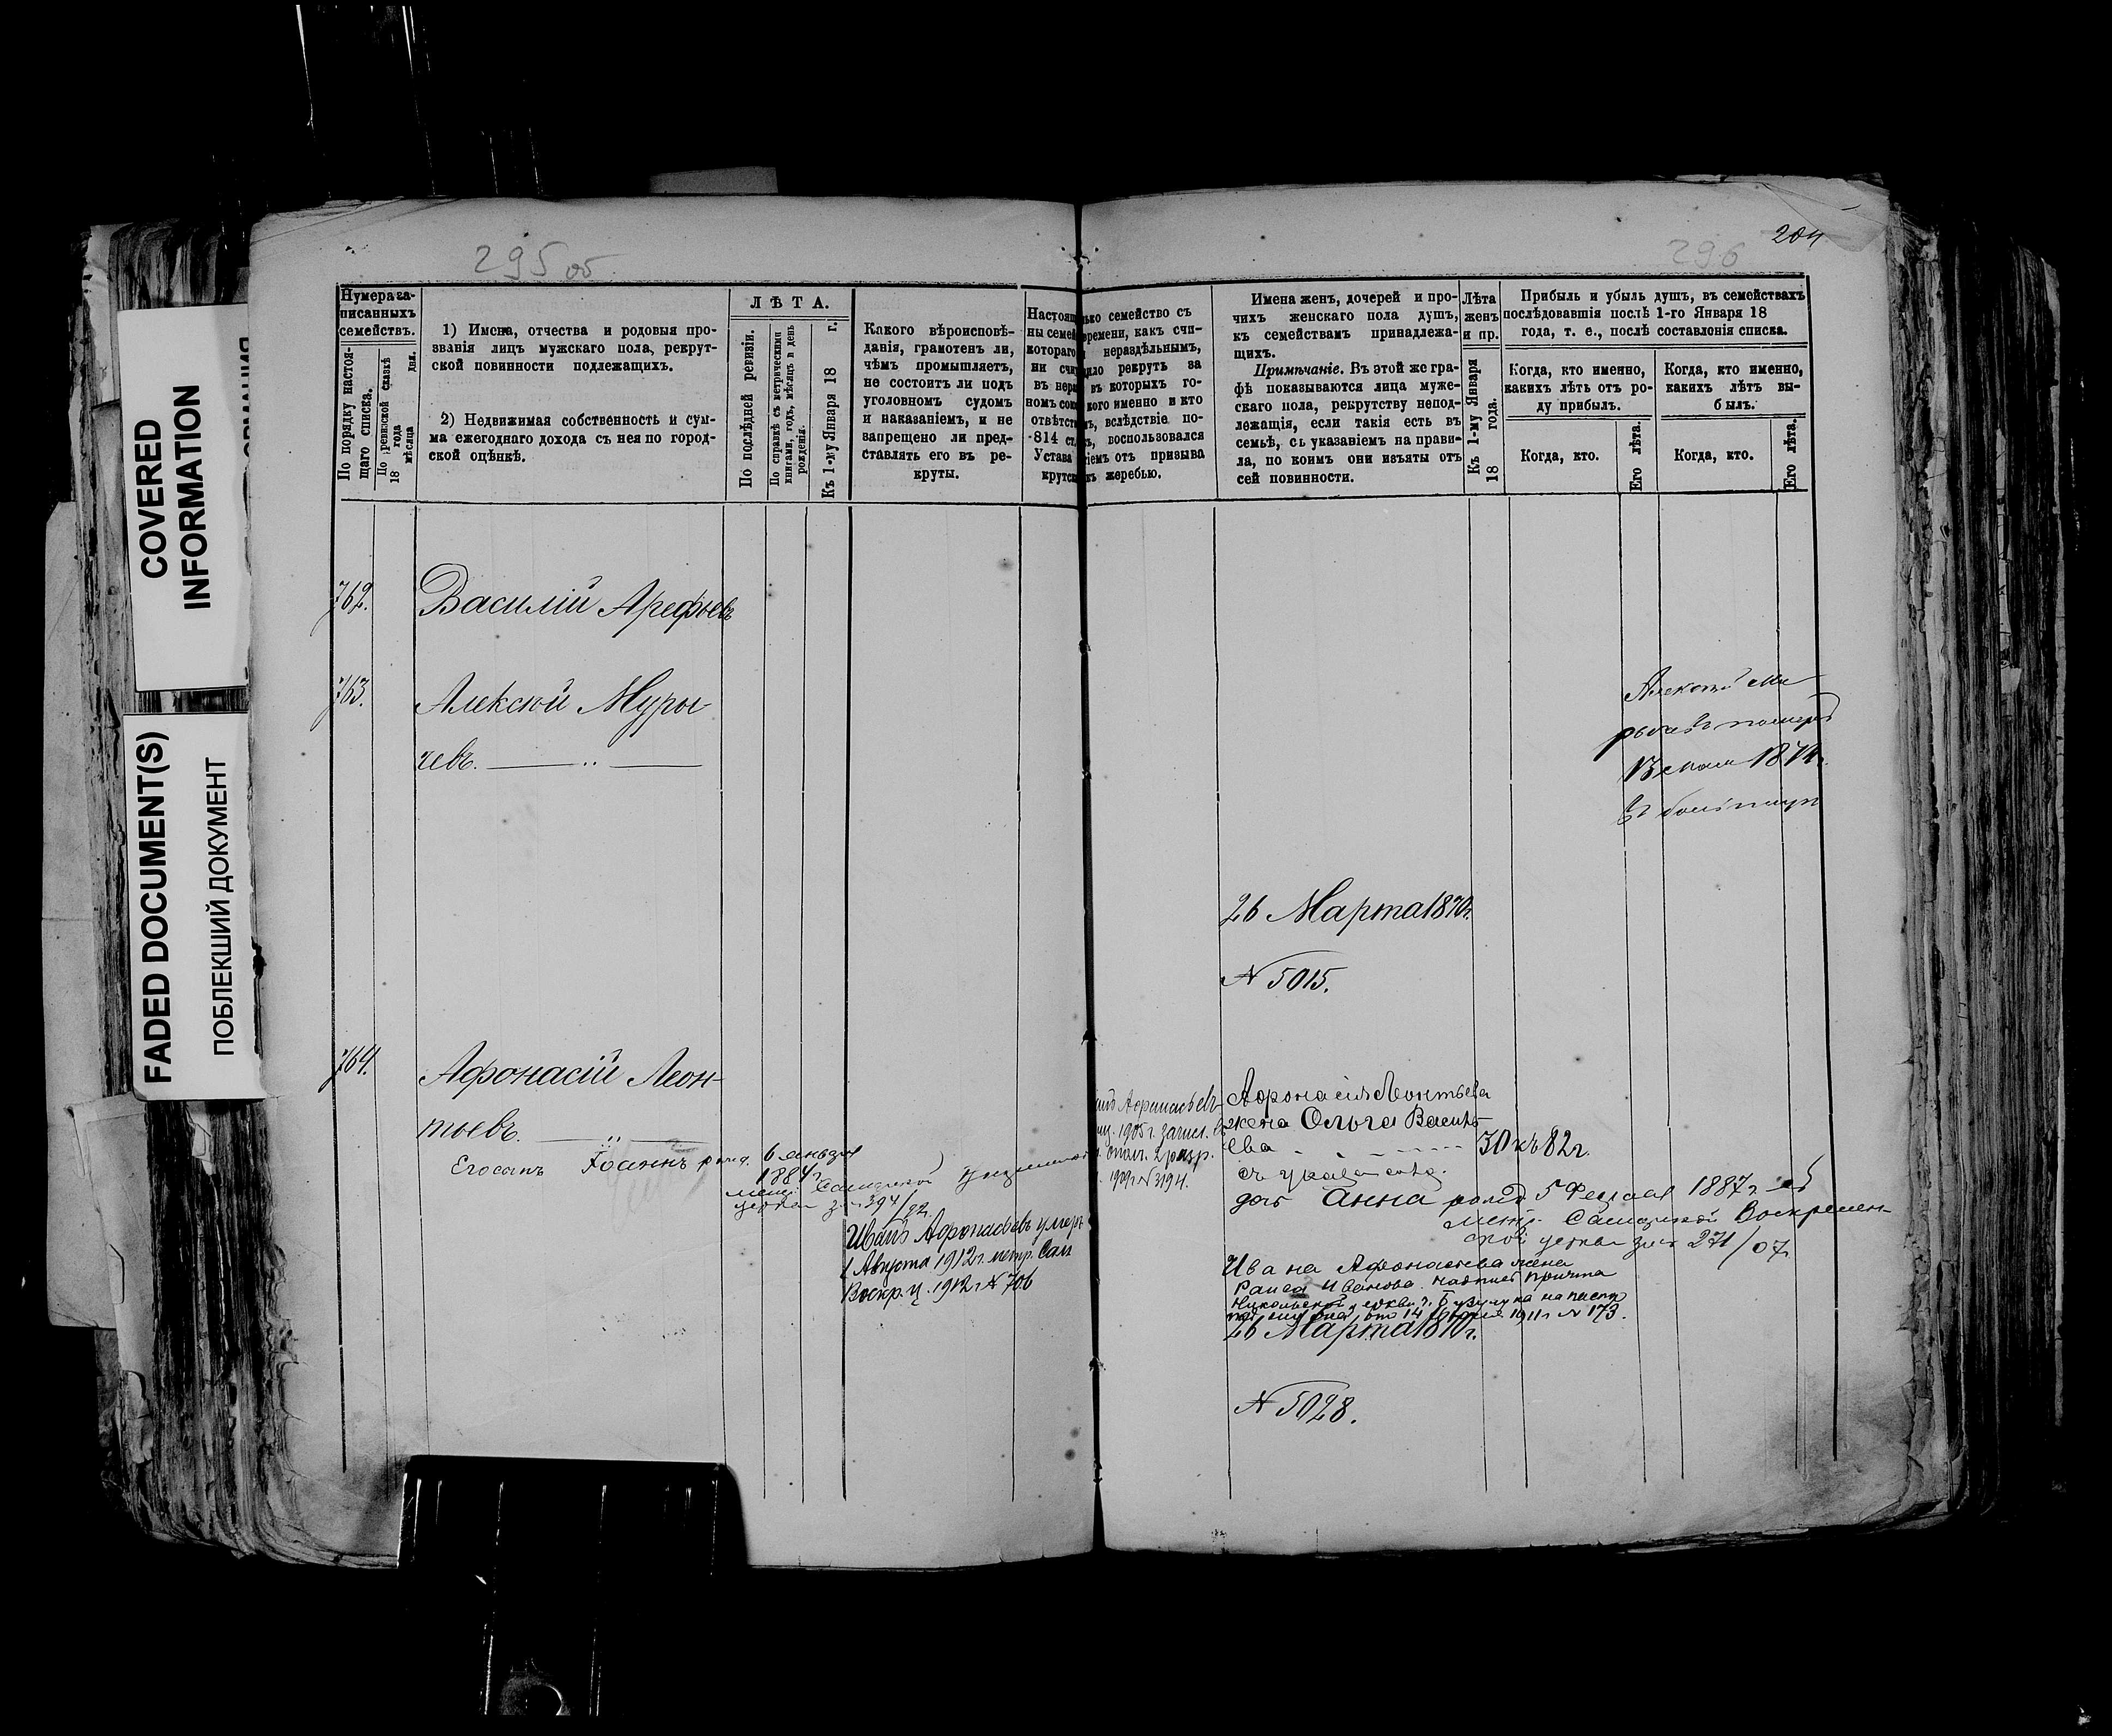 COVERED
INFORMATION
FADED DOCUMENT(S)
ПОБЛЕКШИЙ ДОКУМЕНТ
295 об
296
204
Нумера за-
писанныхъ
семействъ.
По порядку настоя-
щаго списка.
По ревизской сказкѣ
18 года
мѣсяца дня.
1) Имена, отчества и родовыя про-
званія лицъ мужскаго пола, рекрут-
ской повинности подлежащихъ.
2) Недвижимая собственность и сум-
ма ежегоднаго дохода съ нея по город-
ской оцѣнкѣ.
ЛѢТА.
По послѣдней ревизіи.
По справкѣ съ метрическими
книгами, годъ, мѣсяцъ и день
рожденія.
Къ 1-му Января 18 г.
Какого вѣроисповѣ-
данія, грамотенъ ли,
чѣмъ промышляетъ,
не состоитъ ли подъ
уголовномъ судомъ
и наказаніемъ, и не
запрещено ли пред-
ставлять его въ ре-
круты.
Настоящ
ны семей
котораго
ни счи
въ нера
номъ
отвѣтст
814 ст.
Устава
крутск
лько семейство съ
времени, какъ счи-
нераздѣльнымъ,
рекрутъ за
въ которыхъ го-
кого именно и кто
вслѣдствіе по-
воспользовался
отъ призыва
жеребью.
Имена женъ, дочерей и про-
чихъ женскаго пола душъ,
къ семействамъ принадлежа-
щихъ.
Примѣчаніе. Въ этой же гра-
фѣ показываются лица муже-
скаго пола, рекрутству непод-
лежащія, если такія есть въ
семьѣ, съ указаніемъ на прави-
ла, по коимъ они изъяты отъ
сей повинности.
Лѣта
женъ
и пр.
Къ 1-му Января
18 года.
Прибыль и убыль душъ, въ семействахъ
послѣдовавшія послѣ 1-го Января 18
года, т. е., послѣ составленія списка.
Когда, кто именно,
какихъ лѣтъ отъ ро-
ду прибылъ.
Когда, кто именно,
какихъ лѣтъ вы-
былъ.
Когда, кто.
Его лѣта.
Когда, кто.
Его лѣта.
762.
Василій Арефьевъ
763.
Алексѣй Муры-
чевъ.
Алексѣй
померъ
13 1874г.
26 Марта 1870г.
N 5015.
764.
Афонасій Леон-
тьевъ.
Его сынъ Іоаннъ рожд. 6 Января
1884г.
церкви за № 394/92.
Иванъ Афонасьевъ умеръ
1 Августа 1912г. метр. Сам
Воскр. ц. 1912 г. N 706
Афанасьевъ
1905 г. зачисл. въ
опол. 2 разр.
1909 г. N 3194.
Афонасія Леонтьева
жена Ольга Василь-
ева 30 къ 82г.
дочь Анна рожд 5 Февраля 1887г.
метр. Самарской Воскресен-
ской церкви за № 271/07.
Ивана Афонасьева жена
Раиса Иванова. надпись причта
Никольской церкви г. Бузулука на паспор
1911 г N 173.
26 Марта 1870г.
N 5028.